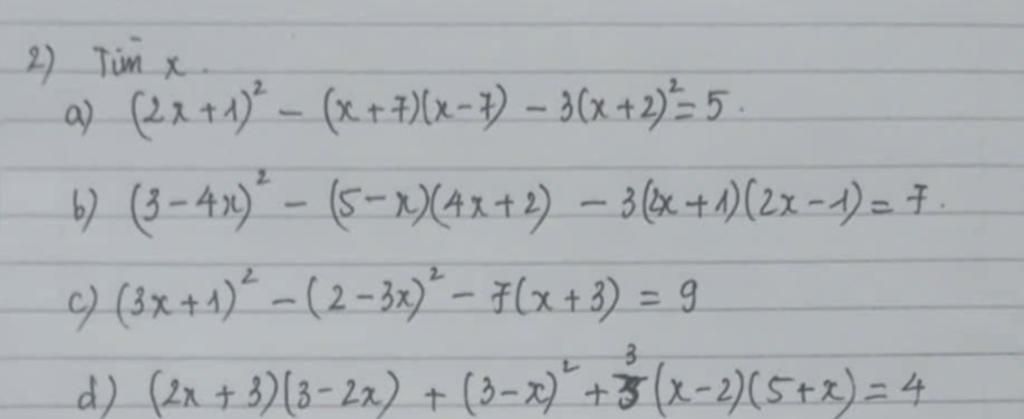 2) Tìm x.
a) (2x+1)² - (x+7)(x-7) - 3(x+2)² = 5.
b) (3-4x)² - (5-x)(4x+2) - 3(2x+1)(2x-1) = 7.
c) (3x+1)² - (2-3x)² - 7(x+3) = 9
d) (2x+3)(3-2x) + (3-x)² + 3(x-2)(5+x) = 4